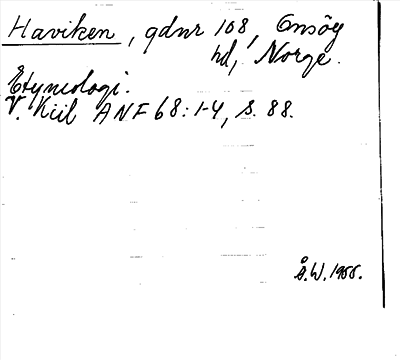 Haviken, gdnr 108, Onsöy
hd, Norge.
Etymologi.
V. Kiil ANF 68:1-4, s. 88.
Å.W. 1955.